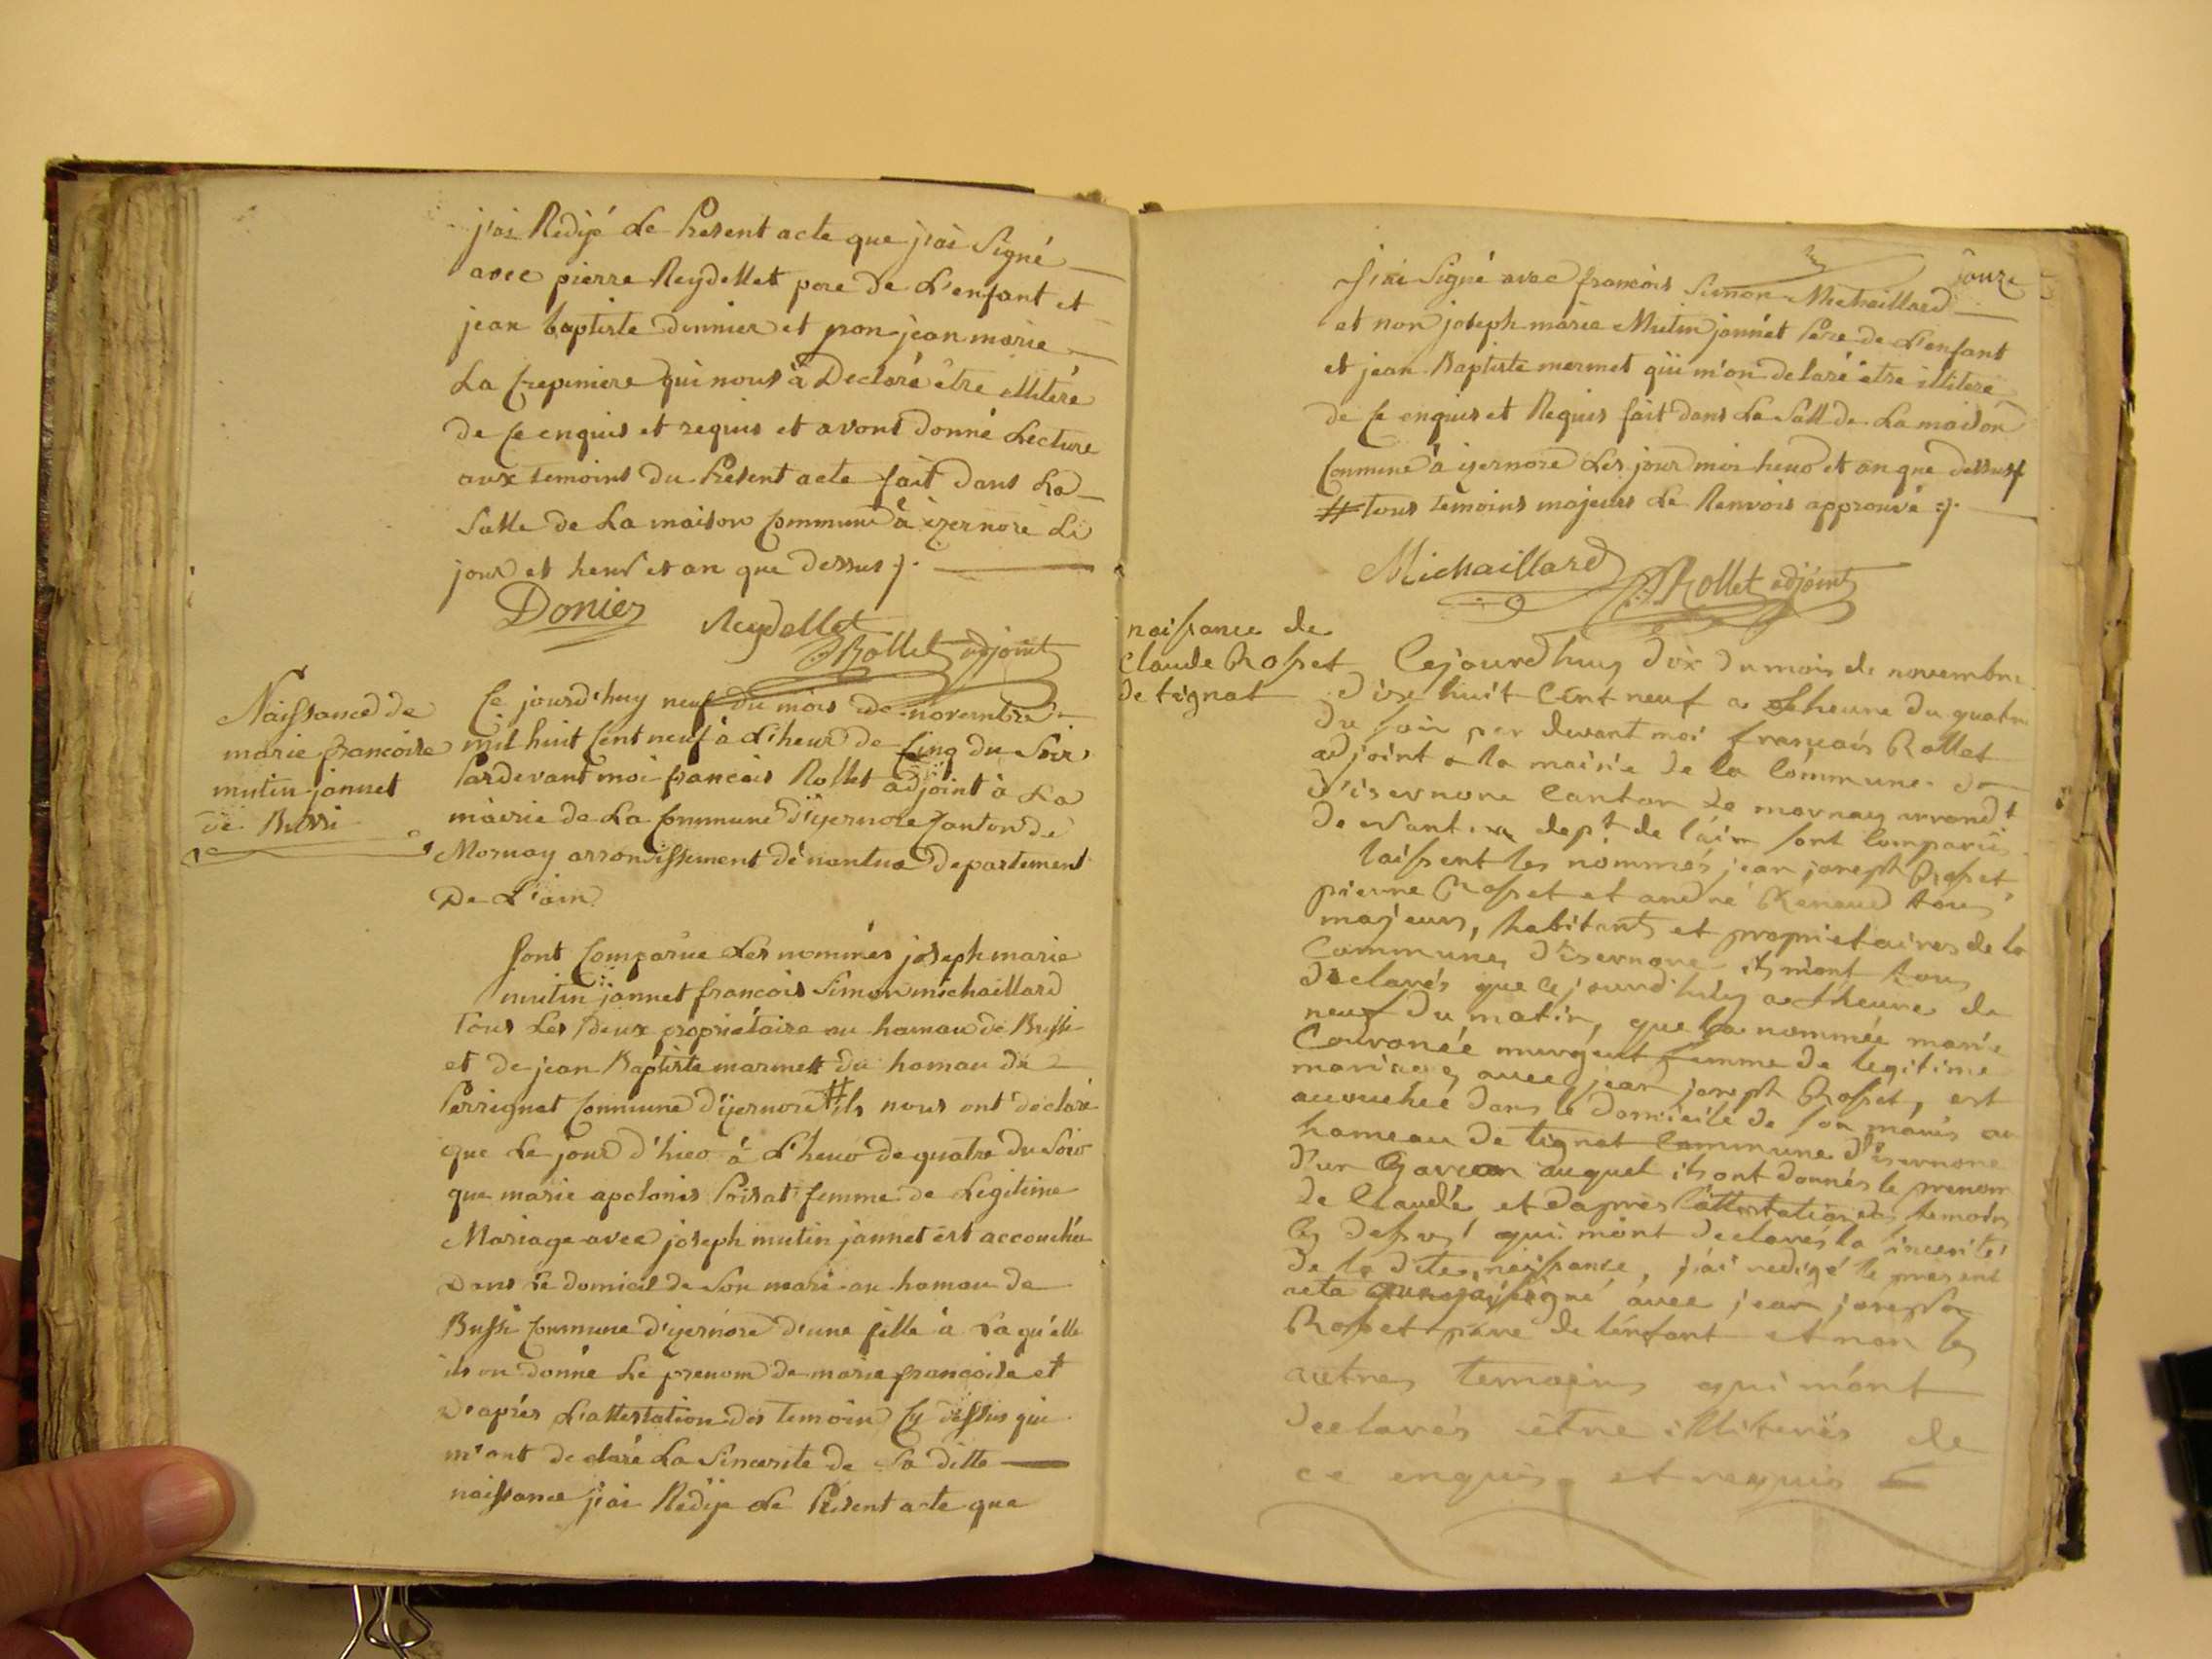 j'ai Redijé Le Present acte que j'ai Signé
avec pierre Reydellet pere de L'enfant et
jean baptiste donnier et non jean marie
La Crepiniere qui nous à Declaré être illiteré
de Ce enquis et requis et avons donné Lecture
aux temoins du Present acte fait dans La
Salle de La maison Commune à izernore Le
jour et heur et an que dessus ./.
Donier Reydellet
Rollet adjoint
Naissance de
marie francoise
mutin jannet
de Bussi
Ce jourd'huy neuf du mois de novembre
mil huit Cent neuf à L'heur de Cinq du Soir
Pardevant moi francois Rollet adjoint à La
mairie de La Commune d'izernore Canton de
Mornay arrondissement de nantua departement
De L'ain
Sont Comparue Les nommés joseph marie
mutin jannet francois Simon michaillard
tous Les deux proprietaire au hamau de Bussi
et de jean Baptiste marmet du hamau de
Perrignat Commune d'izernore # ils nous ont déclaré
que Le jour d'hier à L'heur de quatre du Soir
que marie apolonis Poisat femme de Legitime
Mariage avec joseph mutin jannet est accouchée
Dans Le domicil de Son mari au hamau de
Bussi Commune d'izernore d'une fille à La qu'elle
ils on donné Le prenom de marie francoise et
D'après L'attestation des temoin Cy dessus qui
m'ont declaré La Sincerité de La ditte
naissance j'ai Redije Le Present acte que
onze
J'ai Signé avec francois Simon Michaillard
et non joseph marie Mutin jannét Pere de L'enfant
et jean Baptiste mermet qui m'on delaré etre illiteré
de Ce enquis et Requis fait dans La Sall de La maison
Commune à izernore Les jour mois heur et an que dessus
# tous temoins majeurs Le Renvois approuvé ./.
Michaillard Rollet adjoint
naissance de
Claude Rosset
de tignat
Cejourdhuy dix du mois de novembre
dix huit Cent neuf a Lheure du quatre
du soir par devant moi francois Rollet
adjoint a la mairie de la Commune
d'isernore Canton de mornay arrondt
de nantua dept de l'ain sont Comparus
les nommés jean joseph Rosset
pierre Rosset et andré Renaud tous
majeurs, habitants et proprietaires de la
Commune d'isernore ils m'ont tous
declarés que Cejourd'huy a Lheure de
neuf du matin, que la nommée marie
femme de legitime
mariage avec jean joseph Rosset, est
accouchée dans le domicile de son maris au
hameau de tignat Commune d'isernore
d'un Garcon auquel ils ont donnés le prenom
de Claude et d'apres l'attestation des temoins
Cy dessus qui m'ont declarés la sincerité
de la dite naissance, j'ai redigé le present
acte que j'ai signé avec jean joseph
Rosset pere de l'enfant et non les
autres temoins qui m'ont
declarés etre illiterés de
ce enquis et requis